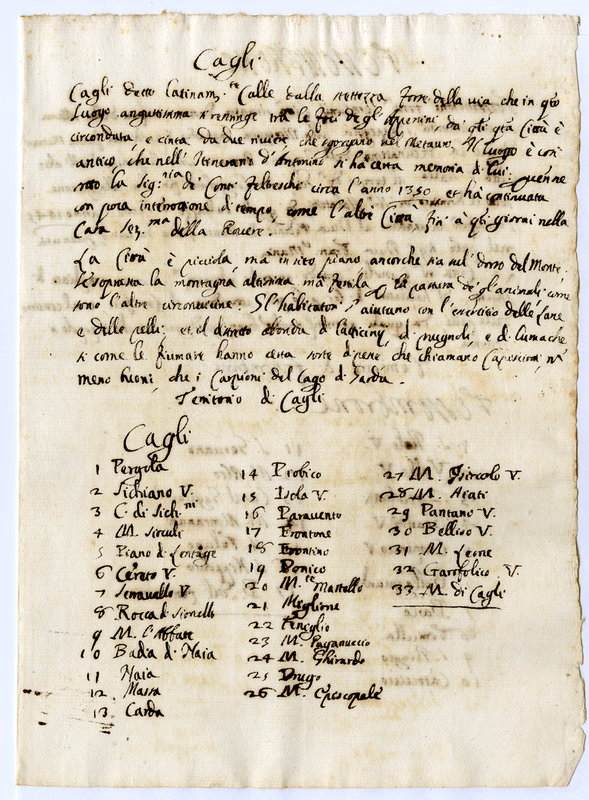 Cagli
Cagli detto latinam.te Calle dalla strettezza forse della via che in qto
luogo angustissima si restringe tra le foci degl'Apenini, da qli qta Città è
circondata, e cinta da due riviere che sgorgano nel Metauro. Il luogo è
antico, che nell'Itinerario d'Antonino si ha certa memoria di lui. Venne
sotto la Sig.ria de Conti Feltreschi circa l'anno 1350 et ha continuata
con poca interrozione di tempo, come l'altre Città fin' à qti giorni nella
Casa Ser.ma della Rovere.
La Città è piccola, mà in sito piano ancorche sia sul dorso del Monte.
Le soprasta la montagna altissima mà fertile p la pastura de gl'animali come
sono l'altre circonvicine. Gl'habitatori s'aiutano con l'esercitio delle lane
e delle pelli: et il distreto abonda di latticinij, di prugnoli, e di lumache
si come le fiumare hanno certa sorte di pesce che chiamano Capescioni, nè
meno buoni, che i Carpioni del Lago di Garda.
Territorio di Cagli
Cagli
1 Pergola
2 Sichiano V.
3 C. di Sich.ni
4 M. Sirculi
5 Piano di
6 Cereto V.
7 Serravallo V.
8 Rocca di
9 M. l'Abbate
10 Badia di Naia
11 Naia
12 Massa
13 Carda
14 Piobico
15 Isola V.
16 Paravento
17 Frontone
18 Frontino
19 Bonico
20 M.te Martello
21 Meglione
22 Feniglio
23 M. Paganuccio
24 M. Ghirardo
25 Drogo
26 M. Episcopale
27 M. V.
28 M. Aiati
29 Pantano V.
30 Belliso V.
31 M. Leone
32 Garofolico V.
33 M. di Cagli